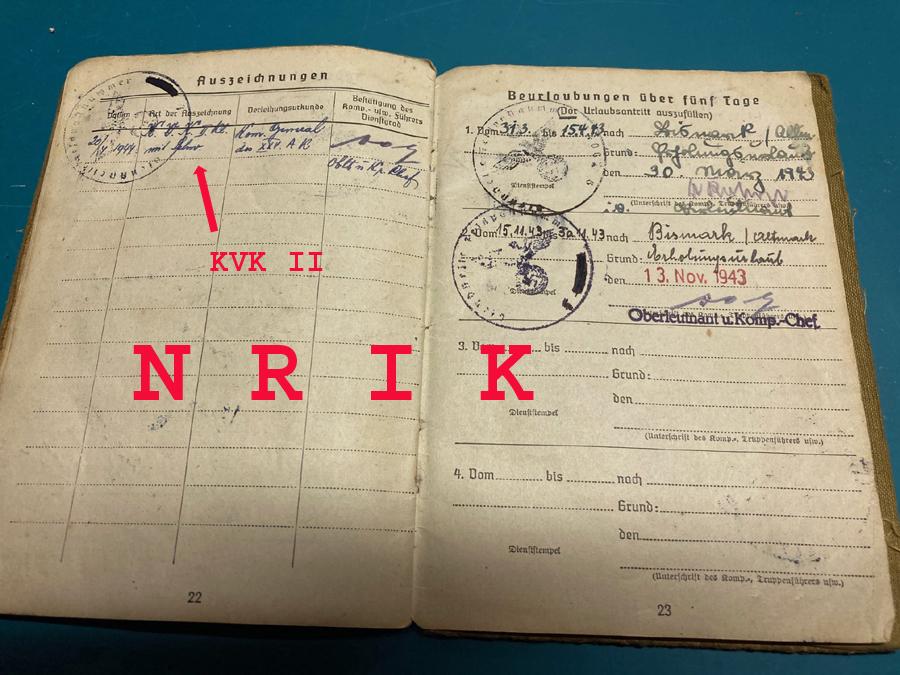 Auszeichnungen
Datum
Art der Auszeichnung
Verleihungsurkunde
Bestätigung des Komp.- usw. Führers
Dienstgrad
20/4 1944
K. V. K. II. Kl.
mit Schw.
Kom. General
des XXV. A. K.
Oblt. u. Kp. Chef
KVK II
N R I K
22
Beurlaubungen über fünf Tage
(Vor Urlaubsantritt auszufüllen)
1. Vom 31.3. bis 15.4.43 nach Bismark / Altm
Grund: Erholungsurlaub
den 30. März 1943
Dienststempel
(Unterschrift des Komp.-, Truppenführers usw.)
2. Vom 15.11.43 bis 30.11.43 nach Bismark / Altmark
Grund: Erholungsurlaub
den 13. Nov. 1943
Dienststempel
Oberleutnant u. Komp.-Chef.
3. Vom bis nach
Grund:
den
Dienststempel
(Unterschrift des Komp.-, Truppenführers usw.)
4. Vom bis nach
Grund:
den
Dienststempel
(Unterschrift des Komp.-, Truppenführers usw.)
23